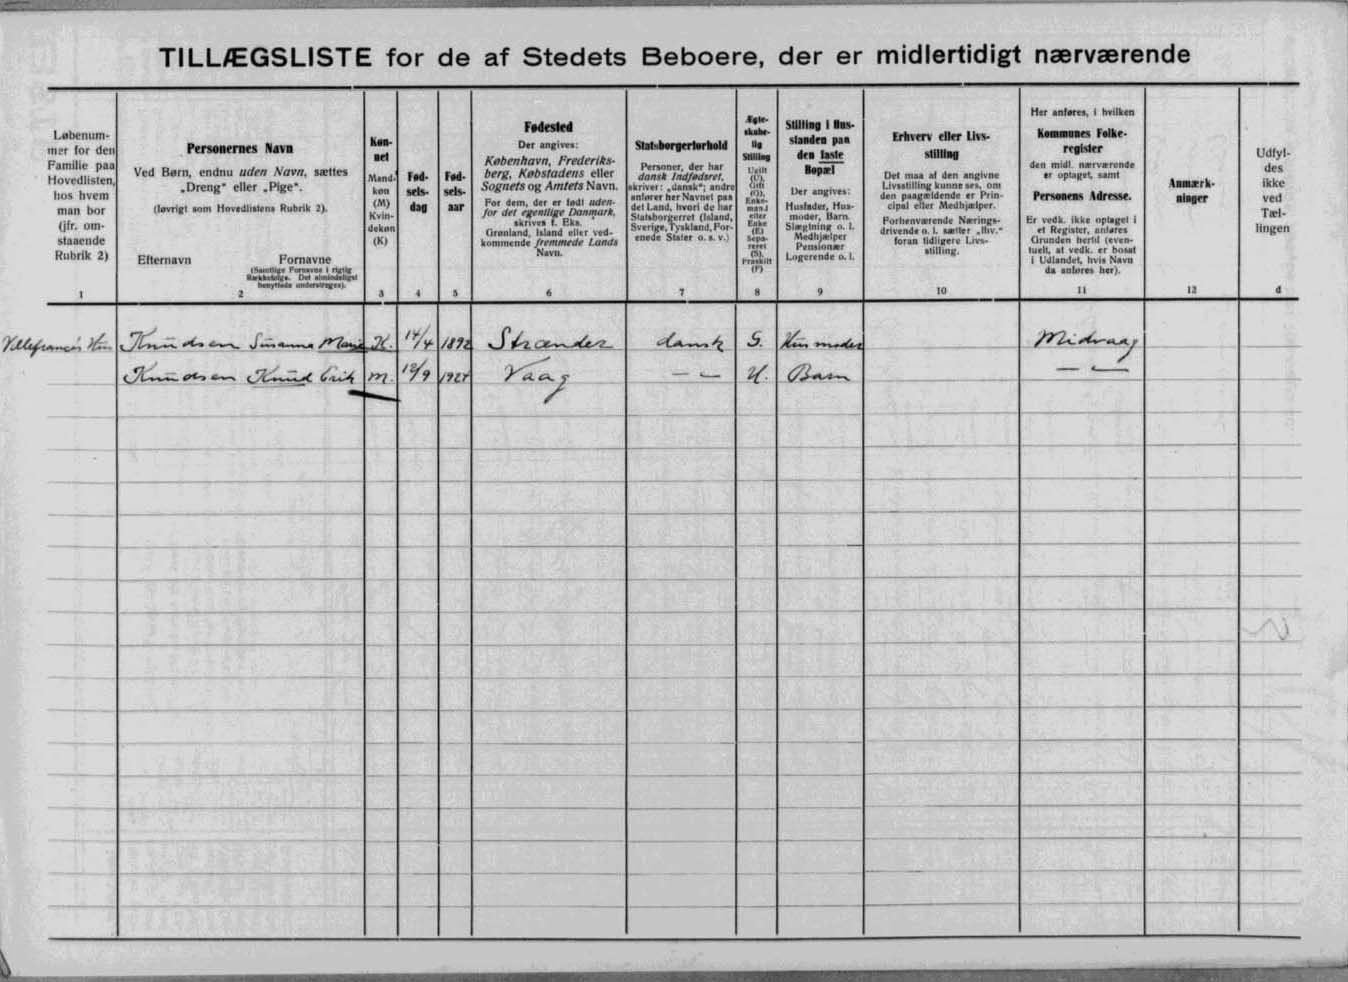 TILLÆGSLISTE for de af Stedets Beboere, der er midlertidigt nærværende
Løbenum-
mer for den
Familie paa
Hovedlisten,
hos hvem
man bor
(jfr. om-
staaende
Rubrik 2)
1
Personernes Navn
Ved Børn, endnu uden Navn, sættes
„Dreng“ eller „Pige“.
(Iøvrigt som Hovedlistens Rubrik 2).
Efternavn Fornavne
(Samtlige Fornavne i rigtig
Rækkefølge. Det almindeligst
benyttede understreges).
2
Køn-
net
Mand-
køn
(M)
Kvin-
dekøn
(K)
3
Fød-
sels-
dag
4
Fød-
sels-
aar
5
Fødested
Der angives:
København, Frederiks-
berg, Købstadens eller
Sognets og Amtets Navn.
For dem, der er født uden-
for det egentlige Danmark,
skrives f. Eks.
Grønland, Island eller ved-
kommende fremmede Lands
Navn.
6
Statsborgerforhold
Personer, der har
dansk Indfødsret,
skriver: „dansk“; andre
anfører her Navnet paa
det Land, hvori de har
Statsborgerret (Island,
Sverige, Tyskland, For-
enede Stater o. s. v.)
7
Ægte-
skabe-
lig
Stilling
Ugift
(U),
Gift
(G),
Enke-
mand
eller
Enke
(E)
Sepa-
reret
(S),
Fraskilt
(F)
8
Stilling i Hus-
standen paa
den faste
Bopæl
Der angives:
Husfader, Hus-
moder, Barn,
Slægtning o. l.
Medhjælper
Pensionær
Logerende o. l.
9
Erhverv eller Livs-
stilling
Det maa af den angivne
Livsstilling kunne ses, om
den paagældende er Prin-
cipal eller Medhjælper.
Forhenværende Nærings-
drivende o. l. sætter „fhv.“
foran tidligere Livs-
stilling.
10
Her anføres, i hvilken
Kommunes Folke-
register
den midl. nærværende
er optaget, samt
Personens Adresse.
Er vedk. ikke optaget i
et Register, anføres
Grunden hertil (even-
tuelt, at vedk. er bosat
i Udlandet, hvis Navn
da anføres her).
11
Anmærk-
ninger
12
Udfyl-
des
ikke
ved
Tæl-
lingen
d
Knudsen Susanna Marie K. 14/4 1892 Strænder dansk G. Husmoder Midvaag
Knudsen Knud Erik M. 12/9 1924 Vaag — — U. Barn — —